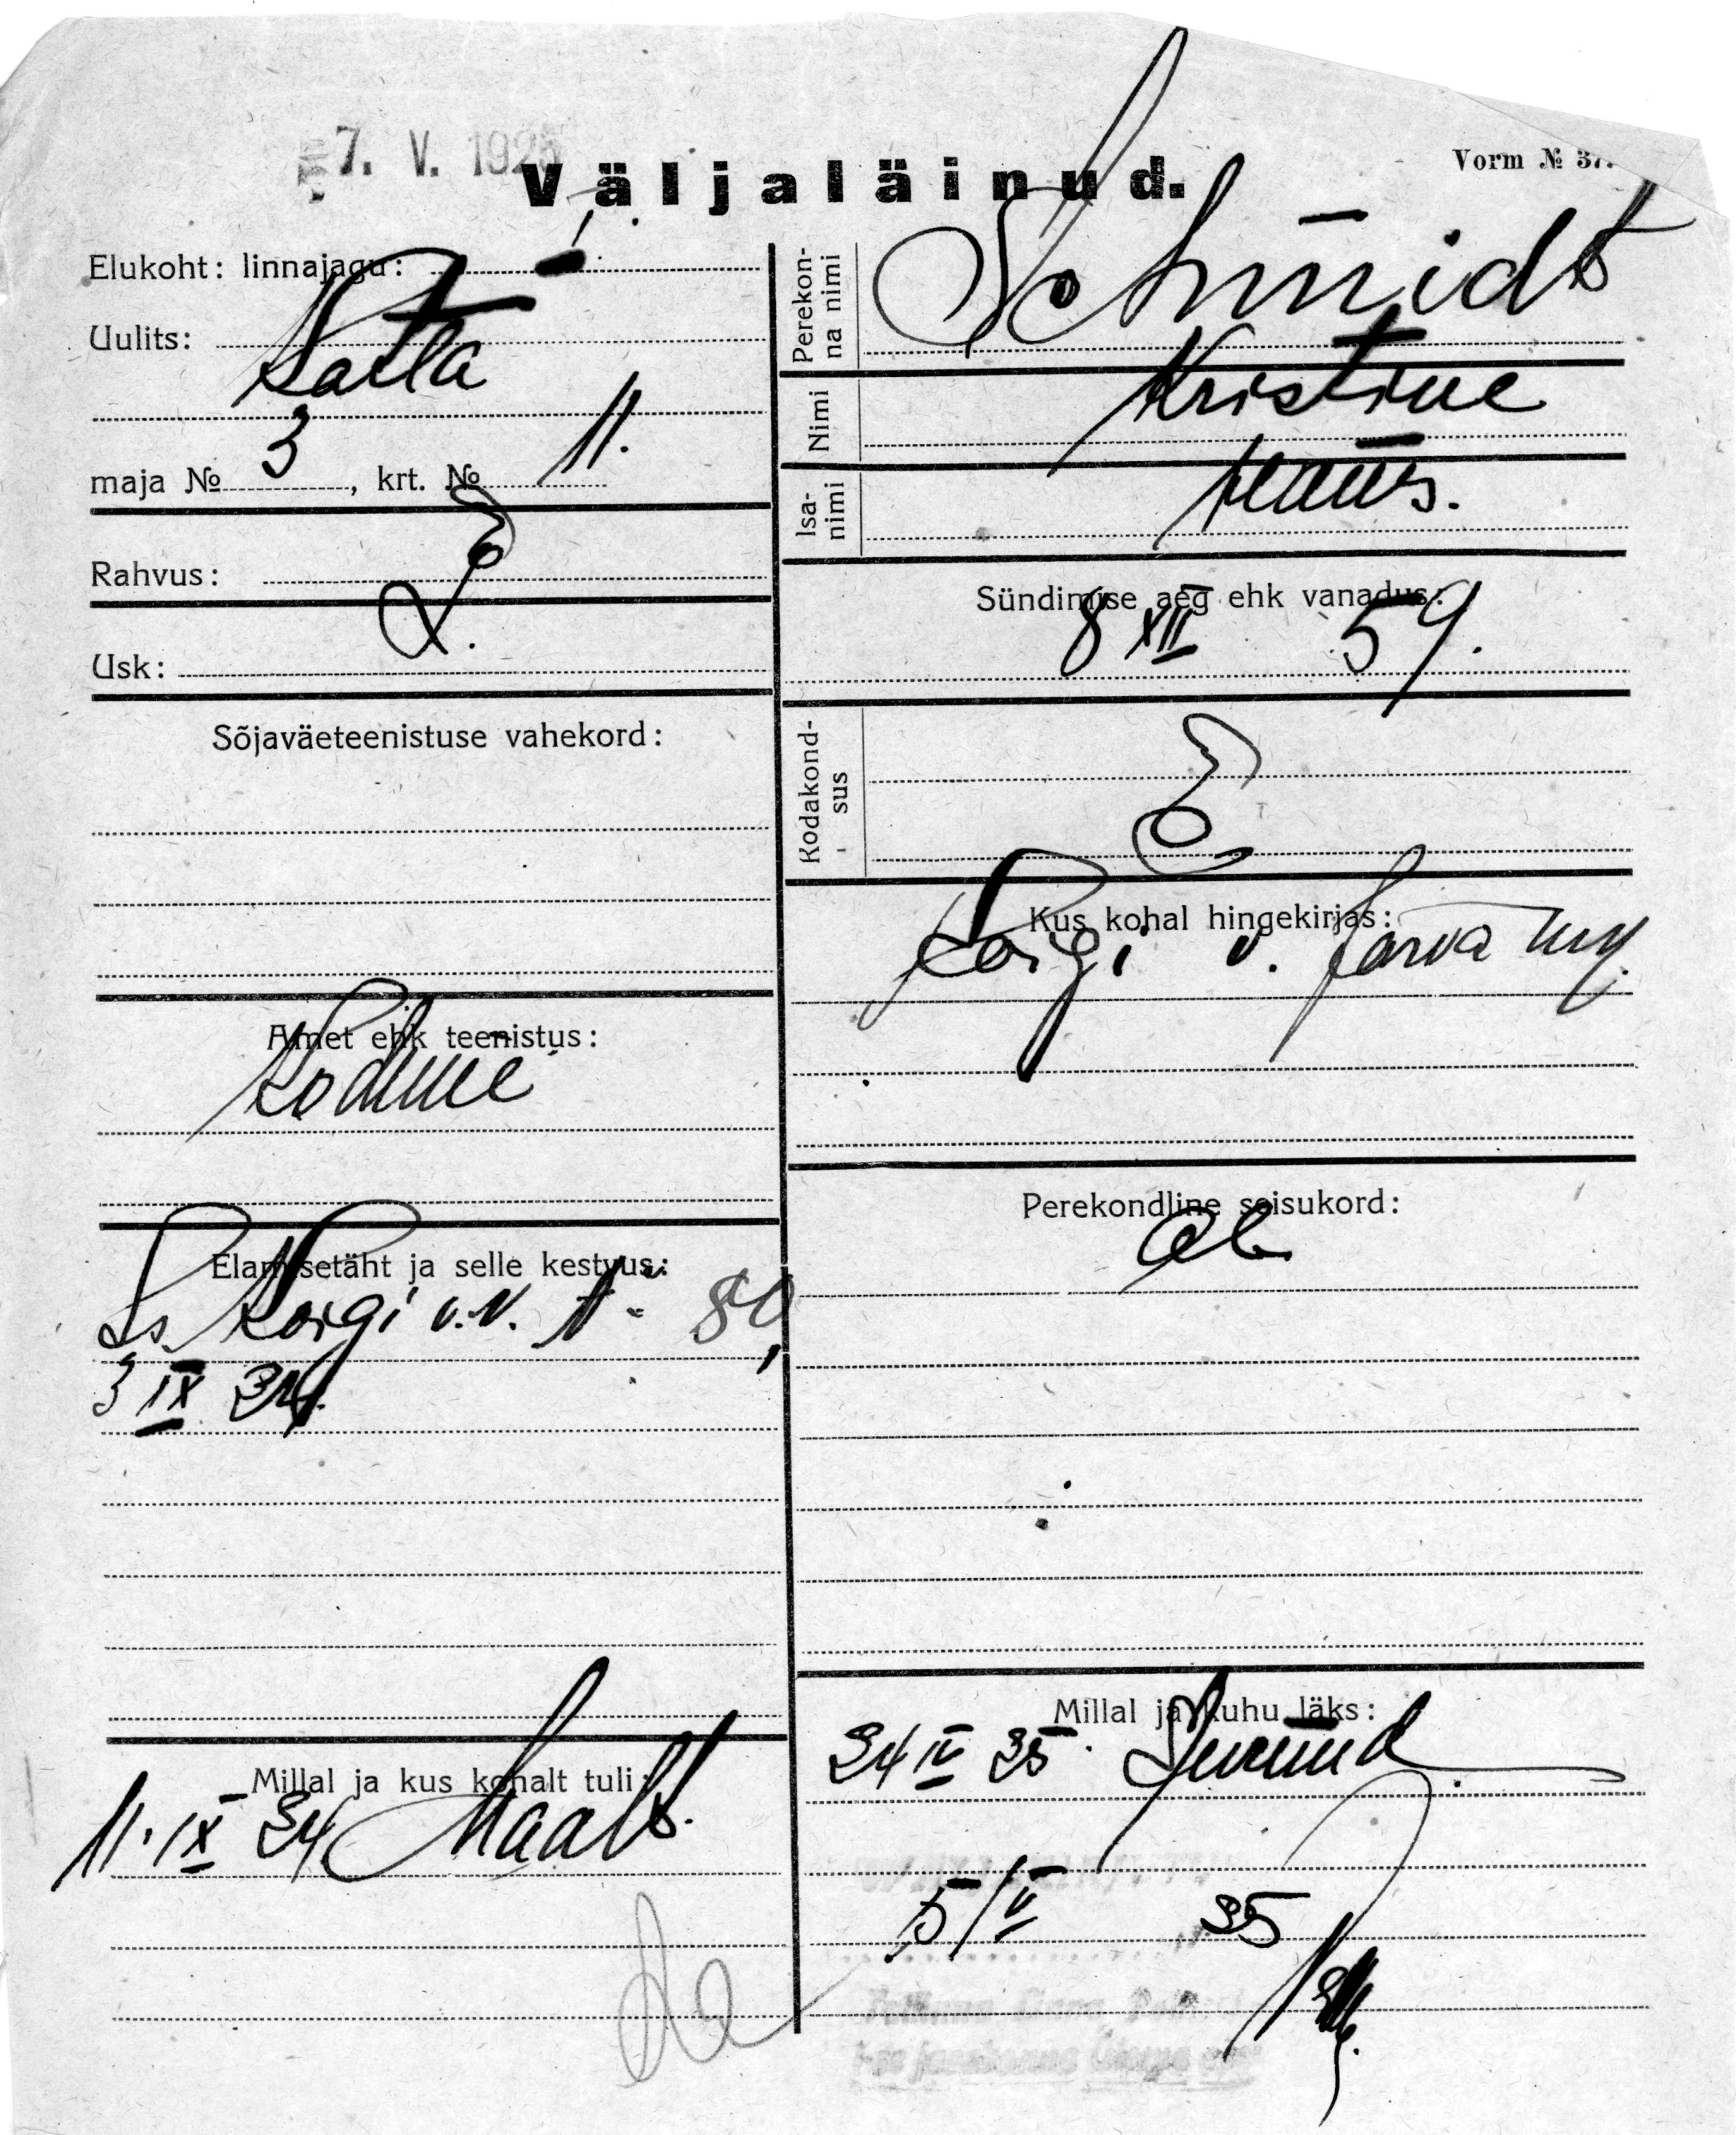 7. V. 1925
Väljaläinud.
Vorm № 37.
Elukoht: linnajagu: I
Uulits: Katla
maja № 3, krt. № 11.
Rahvus: E
Usk: L.
Sõjaväeteenistuse vahekord:
Amet ehk teenistus:
Kodune
Elamisetäht ja selle kestvus:
Is Koigi v.v. № 80,
3 IX 34.
Millal ja kus kohalt tuli:
11. IX 34 Maalt.
Perekonna nimi
Schmidt
Nimi
Kristine
Isanimi
Hans.
Sündimise aeg ehk vanadus:
8 XII 59.
Kodakondsus
E
Kus kohal hingekirjas:
Koigi v. Järva m.
Perekondline seisukord:
ab.
Millal ja kuhu läks:
24 IV 35. Surnud.
5/V 35